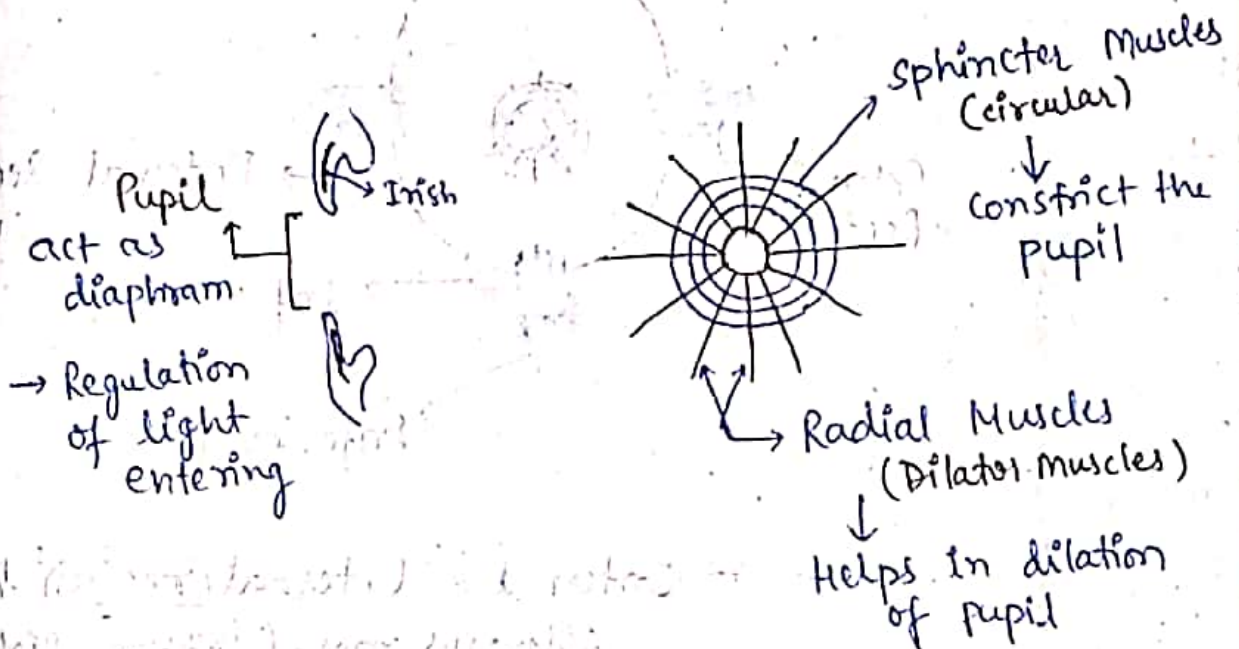 Pupil
act as
diaphram.
→ Regulation
of light
entering
Irish
Sphincter Muscles
(circular)
↓
Constrict the
pupil
Radial Muscles
(Dilator Muscles)
↓
Helps in dilation
of pupil